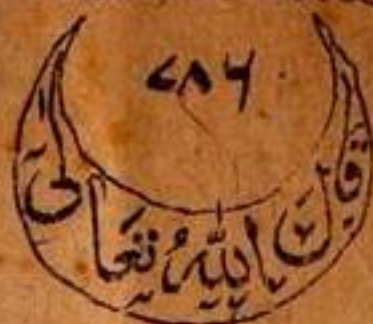 ۷۸۶
قال اللہ تعالیٰ